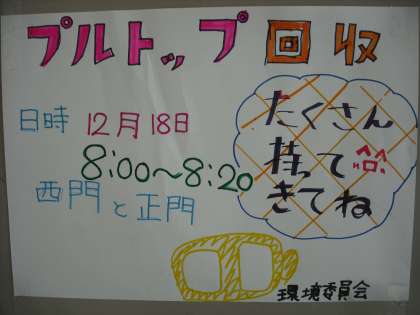 プルトップ回収
日時 12月18日
8:00〜8:20
西門と正門
たくさん
持って
きてね
環境委員会